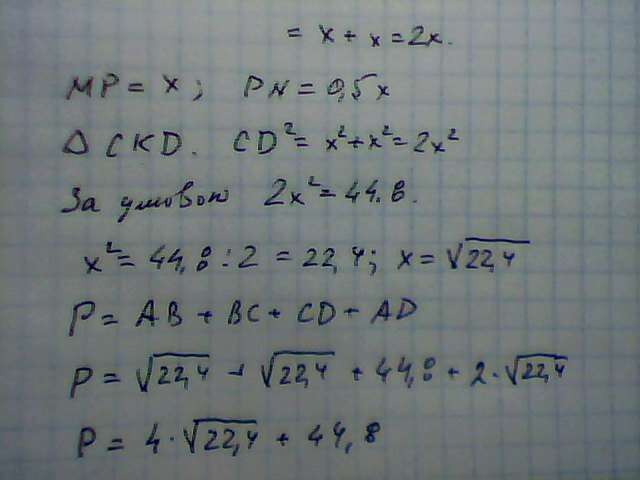 = x + x = 2x.
MP = x; PN = 0,5x
Δ CKD. CD² = x² + x² = 2x²
За умовою 2x² = 44.8.
x² = 44,8 : 2 = 22,4; x = √22,4
P = AB + BC + CD + AD
P = √22,4 + √22,4 + 44,8 + 2·√22,4
P = 4·√22,4 + 44,8